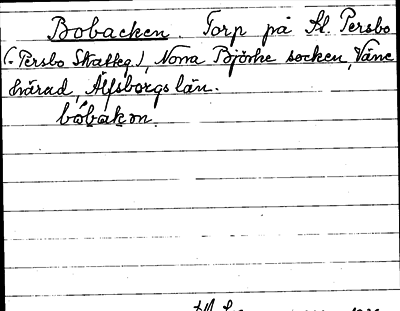 Bobacken. Torp på St. Persbo
(: Persbo Skatteg.), Norra Björke socken, Väne
härad, Älfsborgs län.
bo`bàkɔn.